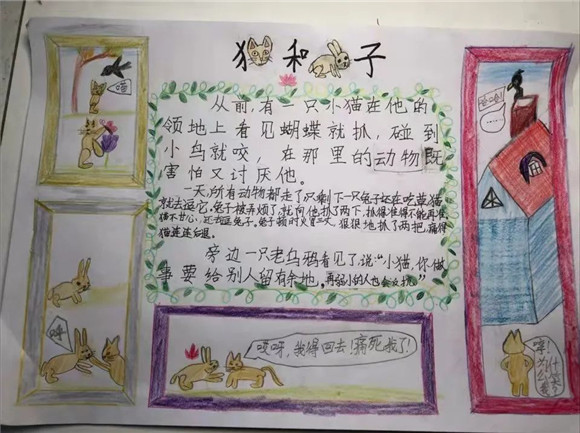 猫和兔子
从前,有一只小猫在他的
领地上看见蝴蝶就抓,碰到
小鸟就咬,在那里的动物既
害怕又讨厌他。
一天,所有动物都走了只剩下一只兔子还在吃草,猫
就去逗它,兔子被弄烦了,就向他抓了两下,抓得准得不能再准
猫不甘心,还去逗兔子,兔子顿时火冒三丈,狠狠地抓了两把,痛得
猫连连后退。
旁边一只老乌鸦看见了,说:“小猫,你做
事要给别人留有余地,再弱小的人也会反抗。”
哎呀,我得回去!痛死我了!
哼!
为什么要